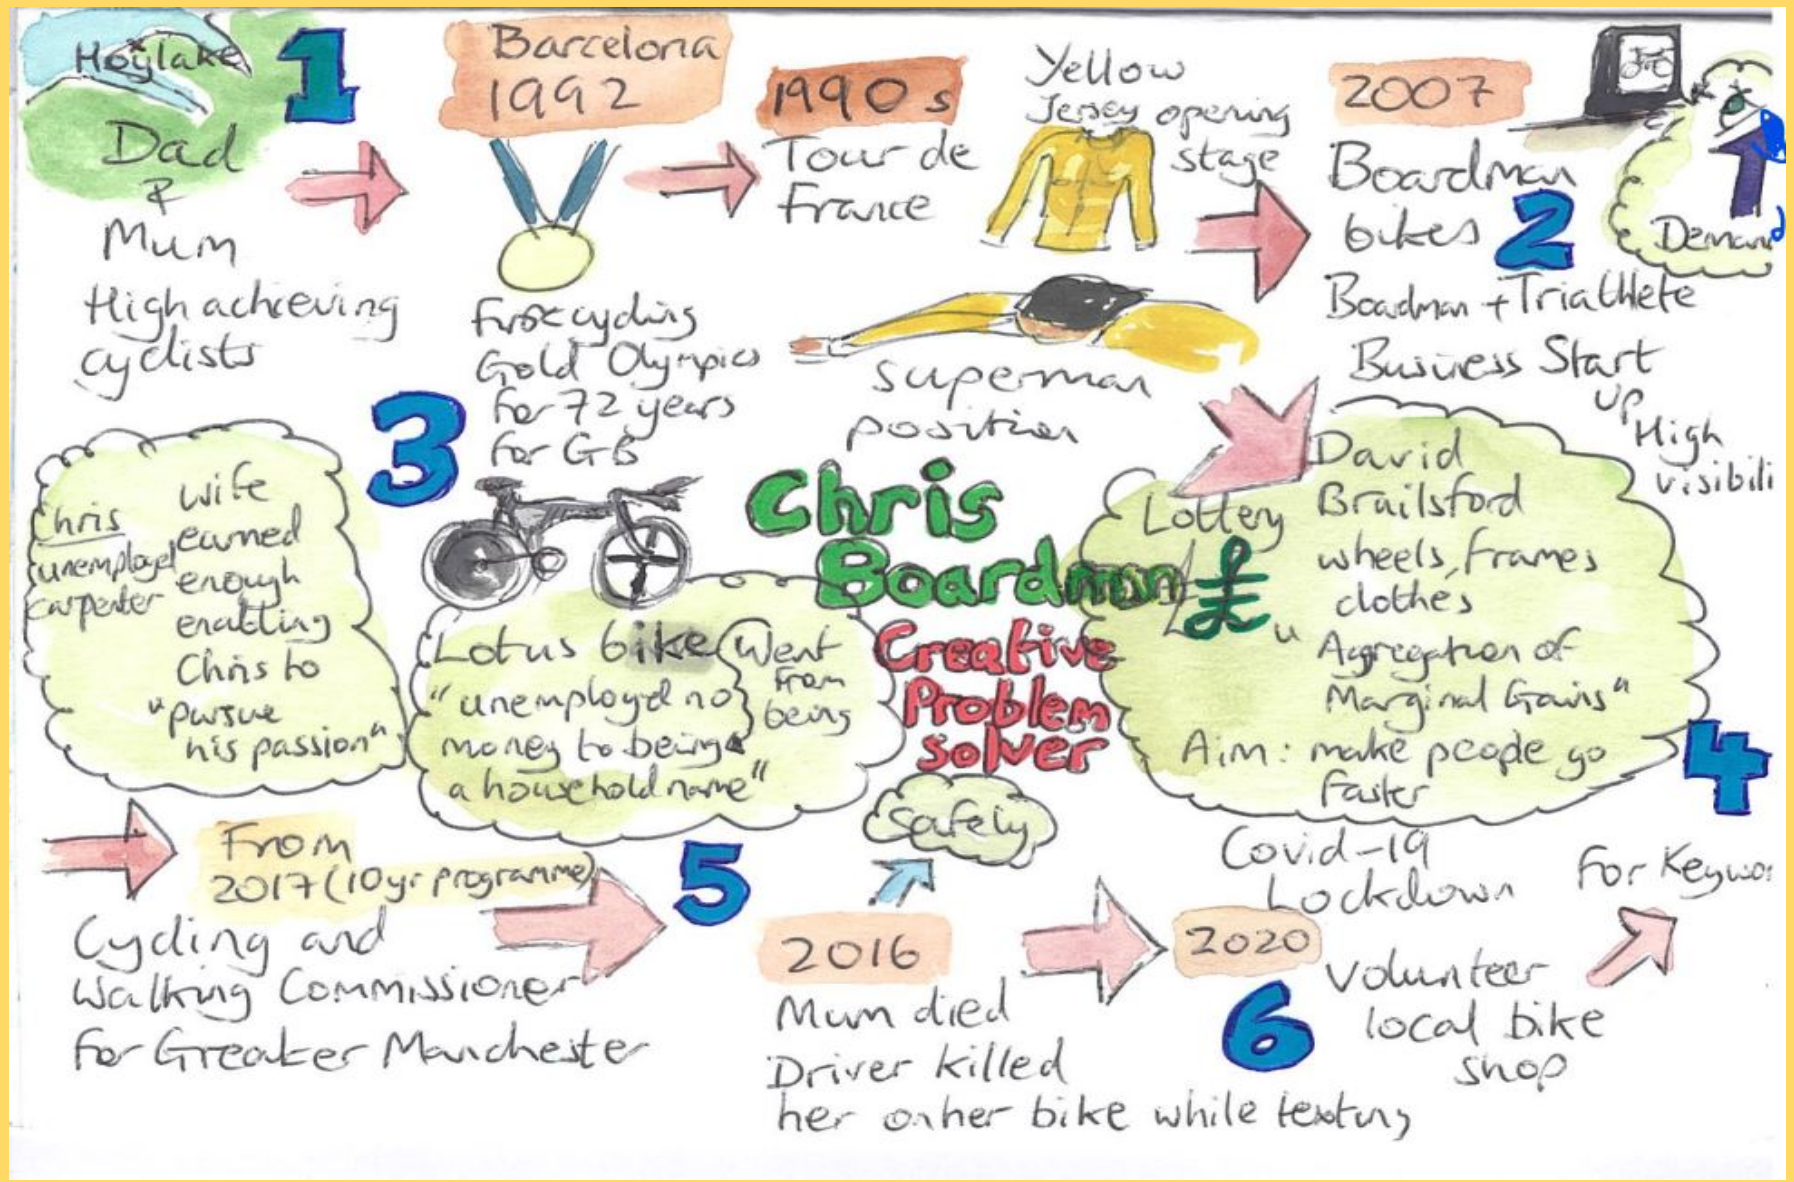 Hoylake
1
Dad
&
Mum
High achieving
cyclists
Barcelona
1992
First cycling
Gold Olympics
for 72 years
for GB
1990s
Tour de
France
Yellow
Jersey opening
stage
superman
position
2007
Boardman
bikes
2
Demand
Boardman + Triathlete
Business Start
up
High
visibili
3
Chris
unemployed
carpenter
wife
earned
enough
enabling
Chris to
"pursue
his passion"
Lotus bike
Went
from
being
"unemployed no
money to being
a household name"
Chris
Boardman
Creative
Problem
solver
Lottery
£
David
Brailsford
wheels, frames
clothes
"Aggregation of
Marginal Gains"
Aim: make people go
faster
4
From
2017 (10yr programme)
Cycling and
Walking Commissioner
for Greater Manchester
5
Safely
2016
Mum died
Driver killed
her on her bike while texting
Covid-19
Lockdown
2020
6
Volunteer
local bike
shop
For Keywor